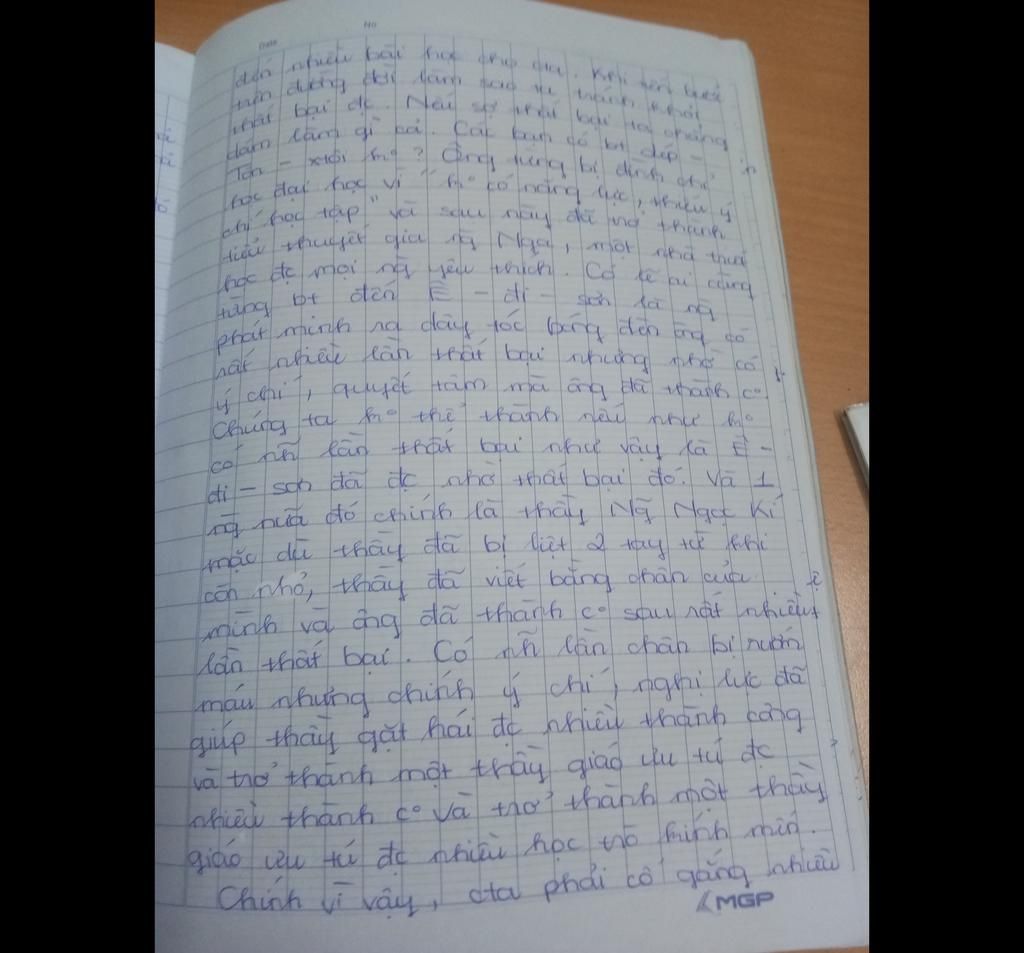 Date
No
đến nhiều bài học cho cta. Khi bước
trên đường đời làm sao ta tránh khỏi
thất bại đc. Nếu sợ thất bại ta chẳng
dám làm gì cả. Các bạn có bt dép -
Tôn - xtôi ko? Ông từng bị đình chỉ
học đại học vì "ko có năng lực, thiếu ý
chí học tập" và sau này đã trở thành
tiểu thuyết gia ng Nga, một nhà
học đc mọi ng yêu thích. Có lẽ ai cũng
từng bt đến Ê - đi - sơn là ng
phát minh ra dây tóc bóng đèn ông có
rất nhiều lần thất bại nhưng nhờ có
ý chí, quyết tâm mà ông đã thành co
Chúng ta ko thể thành nếu như ko
có nh~ lần thất bại như vậy là Ê -
đi - sơn đã đc nhờ thất bại đó. Và 1
ng nữa đó chính là thầy Ng~ Ngọc Kí
mặc dù thầy đã bị liệt 2 tay từ khi
còn nhỏ, thầy đã viết bằng chân của
mình và ông đã thành co sau rất nhiều
lần thất bại. Có nh~ lần chân bị rướm
máu nhưng chính ý chí, nghị lực đã
giúp thầy gặt hái đc nhiều thành công
và trở thành một thầy giáo ưu tú đc
nhiều thành co và trở thành một thầy
giáo ưu tú đc nhiều học trò kính mến.
Chính vì vậy, cta phải cố gắng nhiều
MGP